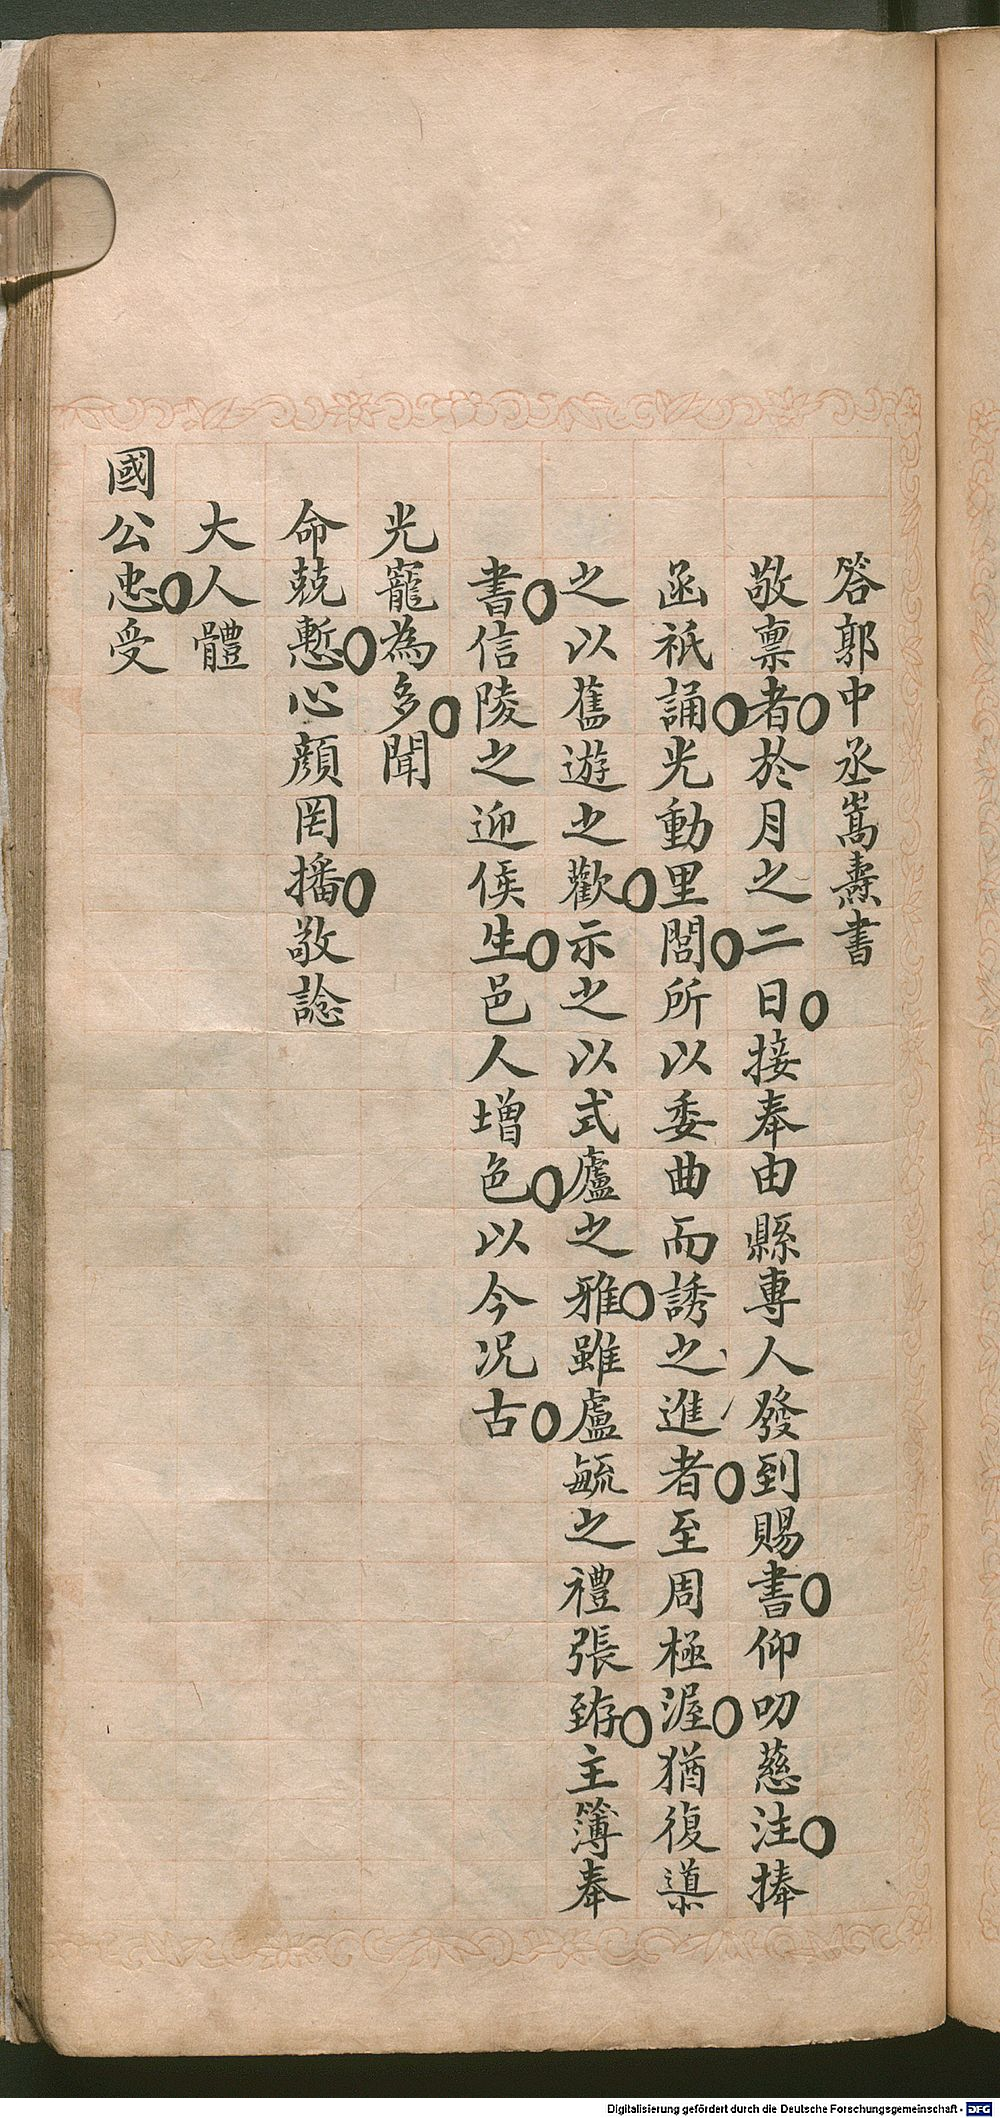 答郭中丞嵩燾書
敬稟者於月之二日接奉由縣專人發到賜書仰叨慈注捧
函祇誦光動里閭所以委曲而誘之進者至周極渥猶復導
之以舊遊之歡示之以式廬之雅雖盧毓之禮張臶主簿奉
書信陵之迎侯生邑人增色以今况古
光寵為多聞
命兢慙心顔罔播敬諗
大人體
國公忠受
Digitalisierung gefördert durch die Deutsche Forschungsgemeinschaft - DFG